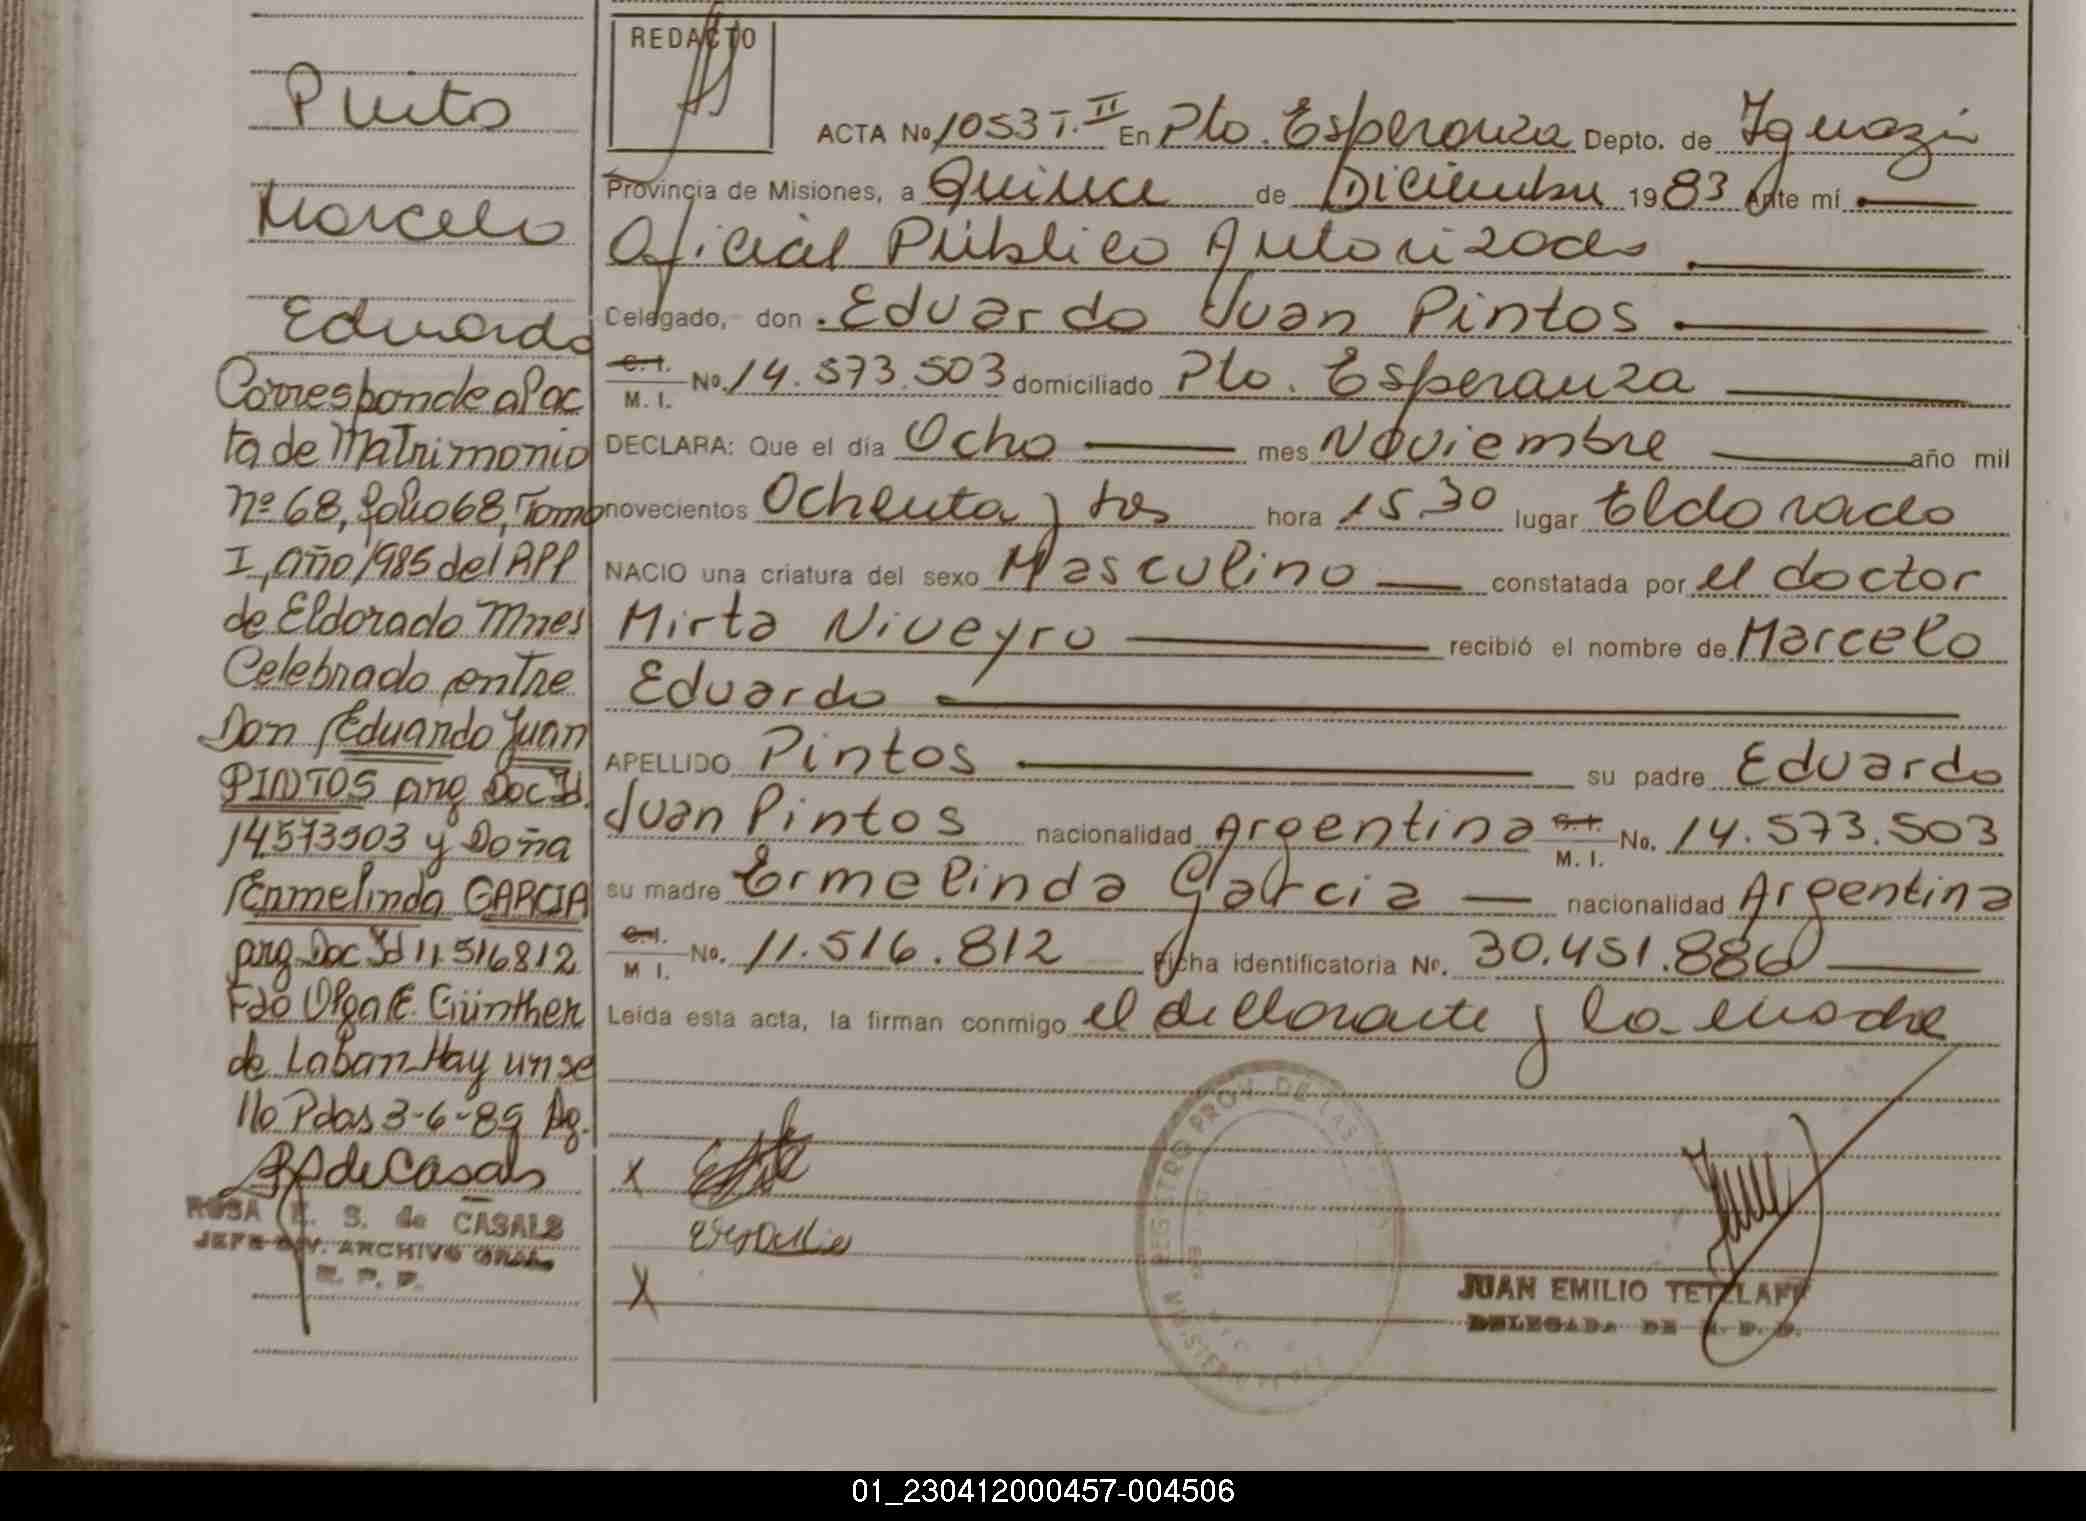 Pinto
Marcelo
Eduardo
Corresponde al ac
ta de Matrimonio
nº 68, folio 68, Tomo
I, año 1985 del RPP
de Eldorado Mnes
Celebrado entre
Don Eduardo Juan
PINTOS arg Doc Id.
14573503 y Doña
Ermelinda GARCIA
arg. Doc Id 11.516812
Fdo Olga E. Günther
de Laban Hay un se
llo Pdas 3-6-85
de Casals
ROSA E. S. de CASALS
JEFE DIV. ARCHIVO GRAL.
R. P. P.
REDACTO
ACTA No 1053 T. II En Pto. Esperanza Depto. de Iguazú
Provincia de Misiones, a Quince de Diciembre 1983 Ante mí
Oficial Público Autorizado
Delegado, don Eduardo Juan Pintos
C. I. M. I. No. 14.573.503 domiciliado Pto. Esperanza
DECLARA: Que el día Ocho mes Noviembre año mil
novecientos Ochenta y tres hora 15.30 lugar Eldorado
NACIO una criatura del sexo Masculino constatada por el doctor
Mirta Niveyro recibió el nombre de Marcelo
Eduardo
APELLIDO Pintos su padre Eduardo
Juan Pintos nacionalidad Argentina C. I. M. I. No. 14.573.503
su madre Ermelinda Garcia nacionalidad Argentina
C. I. M I. No. 11.516.812 Ficha identificatoria No. 30.451.886
Leída esta acta, la firman conmigo el declarante y la madre
X
X
REGISTRO PROV. DE LAS
MINISTERIO
JUAN EMILIO TETZLAFF
DELEGADA DE R. P. P.
01_230412000457-004506